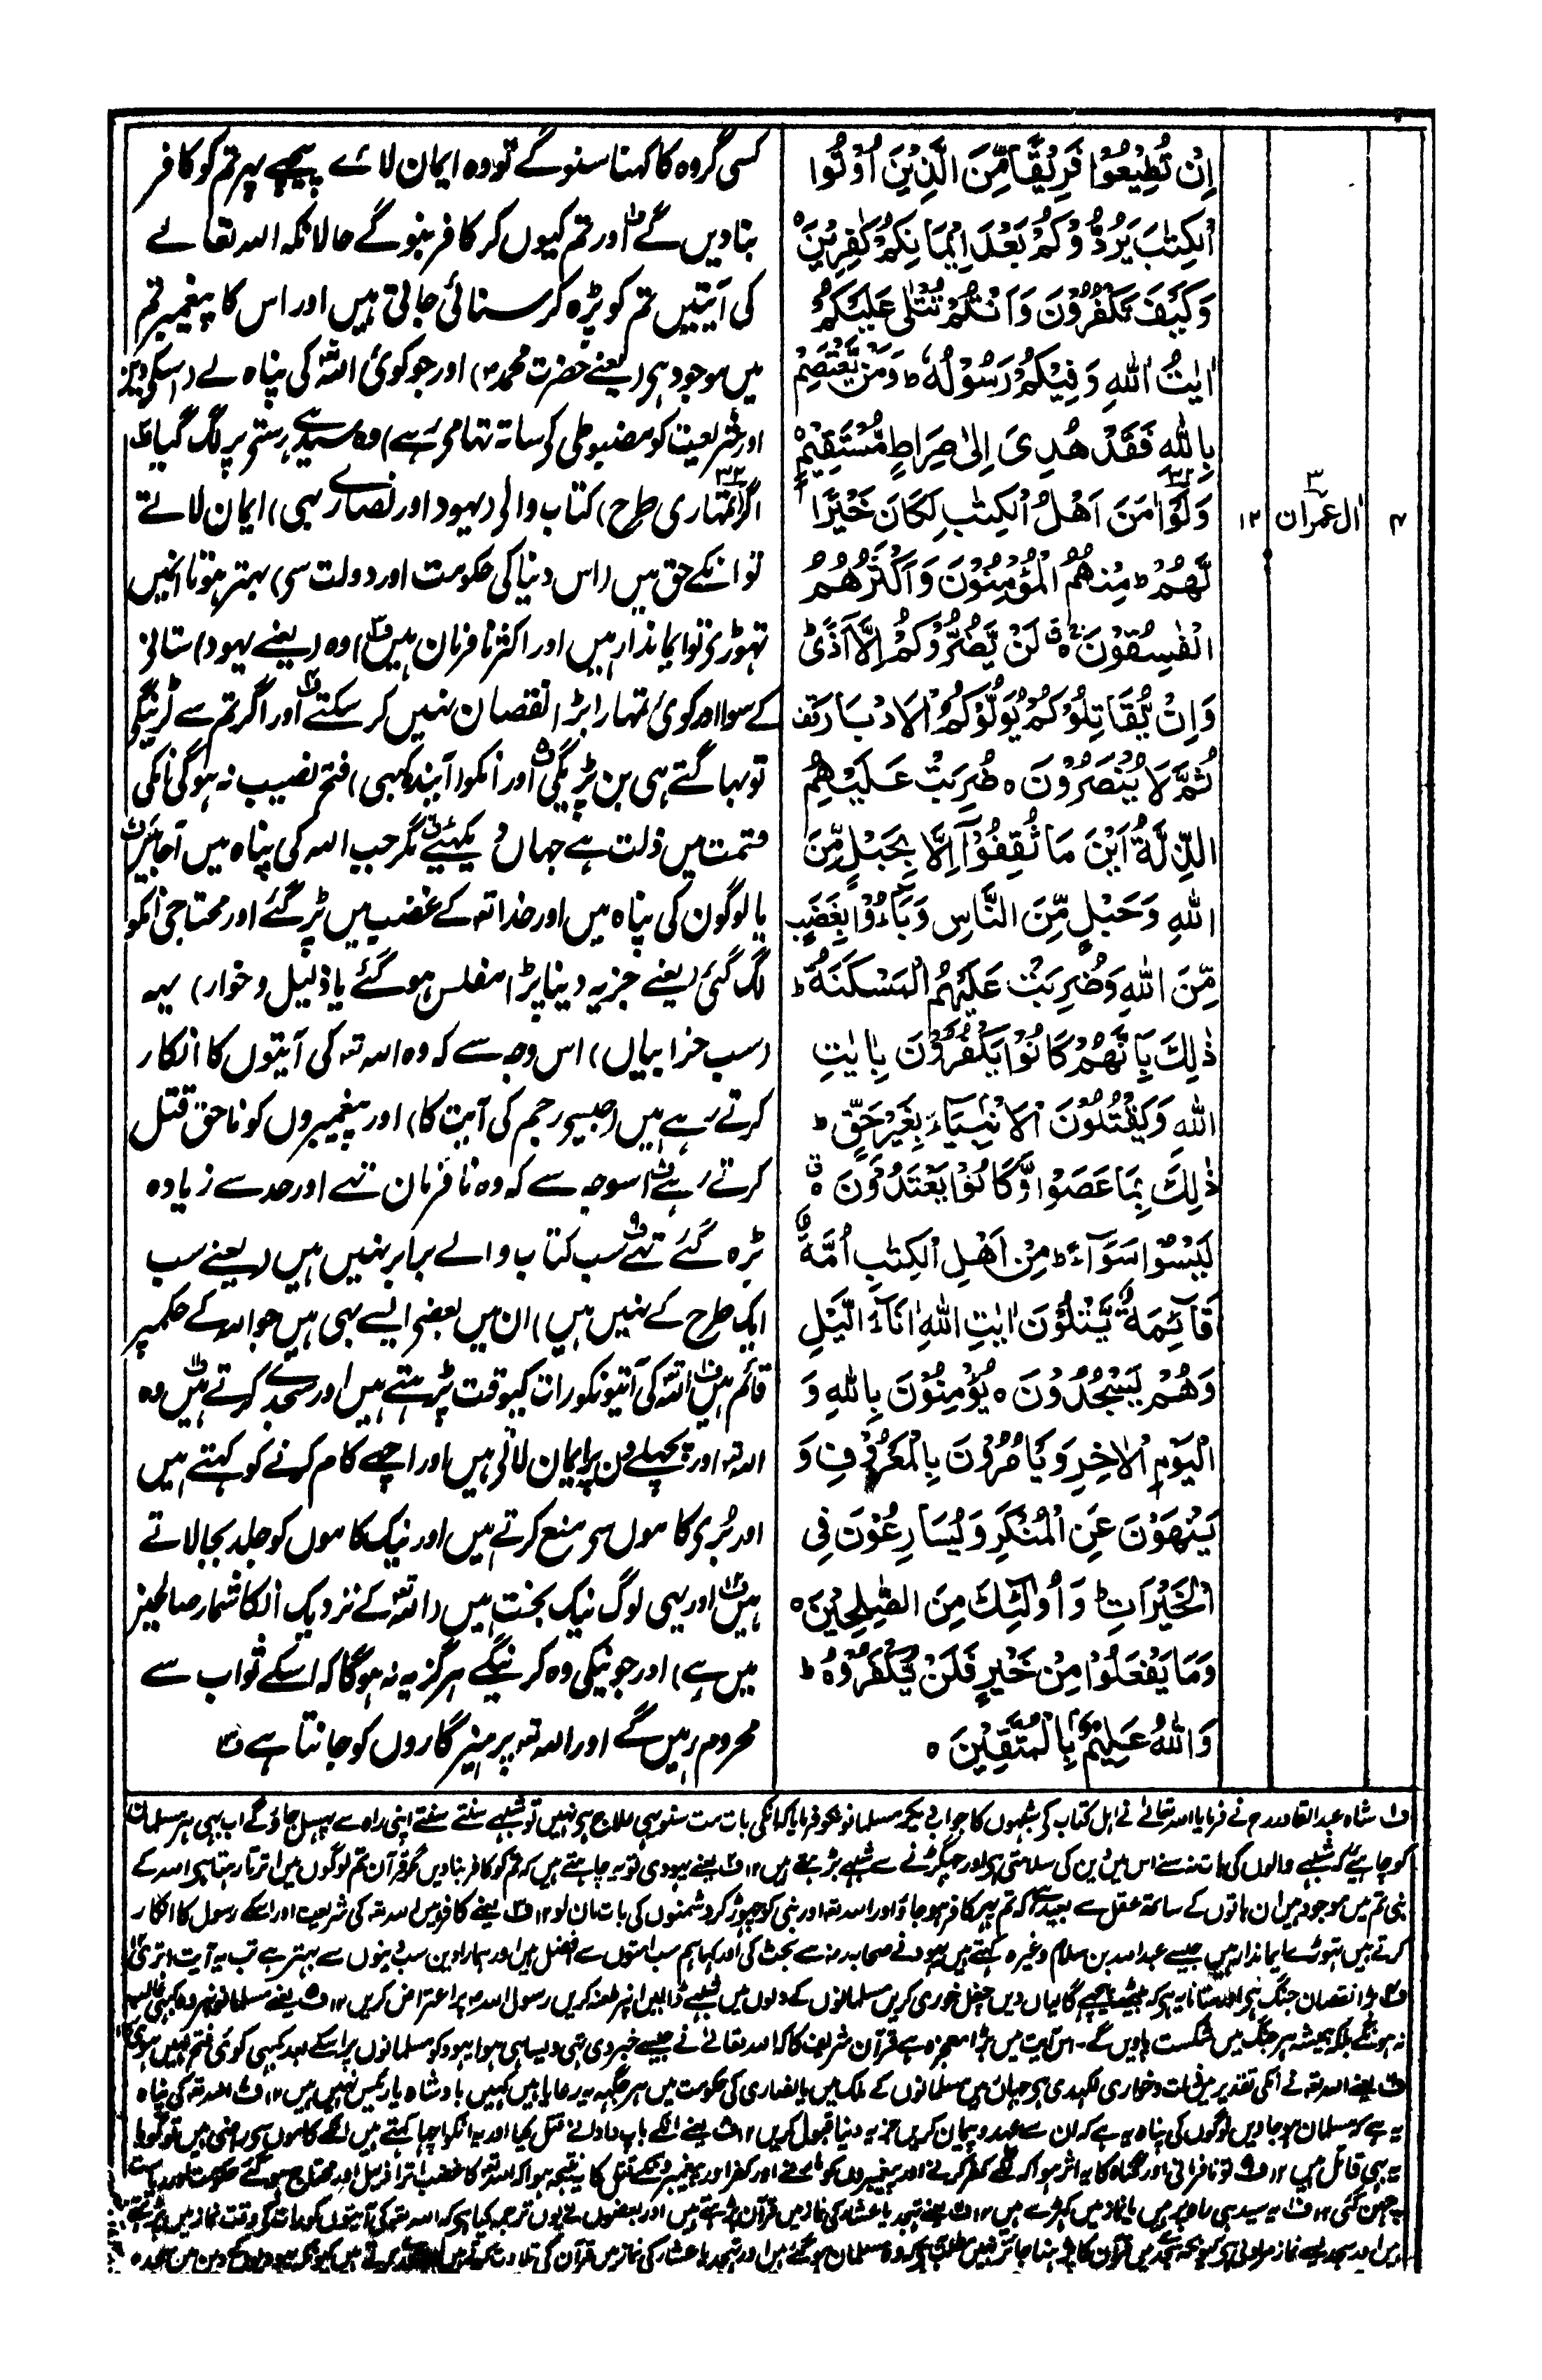 ۴
۳
اٰل عمران
۱۲
اِنْ تُطِيْعُوْا فَرِيْقًا مِّنَ الَّذِيْنَ اُوْتُوا
الْكِتٰبَ يَرُدُّوْكُمْ بَعْدَ اِيْمَانِكُمْ كٰفِرِيْنَ ہ
وَكَيْفَ تَكْفُرُوْنَ وَاَنْتُمْ تُتْلٰى عَلَيْكُمْ
اٰيٰتُ اللّٰهِ وَفِيْكُمْ رَسُوْلُهٗ ط وَمَنْ يَّعْتَصِمْ
بِاللّٰهِ فَقَدْ هُدِىَ اِلٰى صِرَاطٍ مُّسْتَقِيْمٍ ہ
وَلَوْ اٰمَنَ اَهْلُ الْكِتٰبِ لَكَانَ خَيْرًا
لَّهُمْ ط مِنْهُمُ الْمُؤْمِنُوْنَ وَاَكْثَرُهُمُ
الْفٰسِقُوْنَ ہ لَنْ يَّضُرُّوْكُمْ اِلَّا اَذًى
وَاِنْ يُّقَاتِلُوْكُمْ يُوَلُّوْكُمُ الْاَدْبَارَ قف
ثُمَّ لَا يُنْصَرُوْنَ ہ ضُرِبَتْ عَلَيْهِمُ
الذِّلَّةُ اَيْنَ مَا ثُقِفُوْٓا اِلَّا بِحَبْلٍ مِّنَ
اللّٰهِ وَحَبْلٍ مِّنَ النَّاسِ وَبَآءُوْ بِغَضَبٍ
مِّنَ اللّٰهِ وَضُرِبَتْ عَلَيْهِمُ الْمَسْكَنَةُ ط
ذٰلِكَ بِاَنَّهُمْ كَانُوْا يَكْفُرُوْنَ بِاٰيٰتِ
اللّٰهِ وَيَقْتُلُوْنَ الْاَنْبِيَآءَ بِغَيْرِ حَقٍّ ط
ذٰلِكَ بِمَا عَصَوْا وَّكَانُوْا يَعْتَدُوْنَ ہ
لَيْسُوْا سَوَآءً ط مِنْ اَهْلِ الْكِتٰبِ اُمَّةٌ
قَآئِمَةٌ يَّتْلُوْنَ اٰيٰتِ اللّٰهِ اٰنَآءَ الَّيْلِ
وَهُمْ يَسْجُدُوْنَ ہ يُؤْمِنُوْنَ بِاللّٰهِ وَ
الْيَوْمِ الْاٰخِرِ وَيَاْمُرُوْنَ بِالْمَعْرُوْفِ وَ
يَنْهَوْنَ عَنِ الْمُنْكَرِ وَيُسَارِعُوْنَ فِى
الْخَيْرَاتِ ط وَاُولٰٓئِكَ مِنَ الصّٰلِحِيْنَ ہ
وَمَا يَفْعَلُوْا مِنْ خَيْرٍ فَلَنْ يُّكْفَرُوْهُ ط
وَاللّٰهُ عَلِيْمٌۢ بِالْمُتَّقِيْنَ ہ
کسی گروہ کا کہنا سنو گے تو وہ ایمان لائے پیچھے پہر تم کو کافر
بنا دیں گے اور تم کیوں کر کافر بنو گے حالانکہ اللہ تعالے
کی آیتیں تم کو پڑہ کر سنائی جاتی ہیں اور اس کا پیغمبر تم
میں موجود ہی (یعنے حضرت محمد) اور جو کوئی اللہ کی پناہ لے (اسکی دین
اور شریعت کو مضبوطی کی ساتہ تہامی رہے) وہ سیدہے رستی پر لگ گیا
اگر (تمہاری طرح) کتاب والی (یہود اور نصارے بہی) ایمان لاتے
تو انکے حق میں (اس دنیا کی حکومت اور دولت سی) بہتر ہوتا انہیں
تہوڑی تو ایماندار ہیں اور اکثر نافرمان ہیں وہ (یعنے یہود) ستانی
کے سوا اور کوئی تمہارا بڑا نقصان نہیں کر سکتے اور اگر تم سے لڑینگی
تو بہاگتے ہی بن پڑیگی اور انکو (آیندہ کبہی) فتح نصیب نہ ہوگی انکی
قسمت میں ذلت ہے جہاں دیکہئیے مگر جب اللہ کی پناہ میں آجائیں
یا لوگون کی پناہ میں اور خدا تعہ کے غضب میں پڑ گئے اور محتاجی انکو
لگ گئی (یعنے جزیہ دینا پڑا مفلس ہو گئے یا ذلیل و خوار) یہہ
(سب خرابیاں) اس وجہ سے کہ وہ اللہ تعہ کی آیتوں کا انکار
کرتے رہے ہیں (جیسی رجم کی آیت کا) اور پیغمبروں کو ناحق قتل
کرتے رہے اسوجہ سے کہ وہ نافرمان تہے اور حد سے زیادہ
بڑہ گئے تہے سب کتاب والے برابر نہیں ہیں (یعنے سب
ایک طرح کے نہیں ہیں) ان میں بعضی ایسے بہی ہیں جو اللہ کے حکم پر
قائم ہیں اللہ کی آیتونکو رات کیوقت پڑہتے ہیں اور سجدے کرتے ہیں وہ
اللہ تعہ اور پچہلے دن پر ایمان لاتی ہیں اور اچہے کام کرنے کو کہتے ہیں
اور بُری کاموں سی منع کرتے ہیں اور نیک کاموں کو جلد بجا لاتے
ہیں اور یہی لوگ نیک بخت ہیں (اللہ کے نزدیک انکا شمار صالحین
میں ہے) اور جو نیکی وہ کرینگے ہرگز یہ نہ ہوگا کہ اسکے ثواب سے
محروم رہیں گے اور اللہ تعہ پرہیزگاروں کو جانتا ہے
ف۱ شاہ عبدالقادر رح نے فرمایا اللہ تعالے نے اہل کتاب کی شبہوں کا جواب دیکر مسلمانونکو فرمایا کہ انکی بات مت سنو یہی علاج ہی نہیں تو شبہے سنتے سنتے اپنی راہ سے پہسل جاؤ گے اب بہی ہر مسلمان
کو چاہئیے کہ شبہے والوں کی بات نہ سنے اس میں دین کی سلامتی ہی اور جہگڑنے سے شبہے بڑہتے ہیں ۱۲ ف۲ یعنے یہودی تو یہ چاہتے ہیں کہ تم کو کافر بنا دیں مگر قرآن تم لوگوں میں اترتا رہتا ہی اللہ کے
نبی تم میں موجود ہیں ان باتوں کے ساتہ عقل سے بعید ہے کہ تم پہر کافر ہو جاؤ اور اللہ تعہ اور نبی کو چہوڑ کر دشمنوں کی بات مان لو ۱۲ ف۳ یعنے کافر ہیں اللہ تعہ کی شریعت اور اسکے رسول کا انکار
کرتے ہیں تہوڑے ایماندار ہیں جیسے عبد اللہ بن سلام وغیرہ کہتے ہیں یہود نے صحابہ رض سے بحث کی اور کہا ہم سب امتوں سے افضل ہیں اور ہمارا دین سب دینوں سے بہتر ہے تب یہ آیت اتری ۱۲
ف۴ بڑا نقصان جنگ ہی اور ستانا یہ ہی کہ پیٹہہ پیچہے گالیاں دیں چغل خوری کریں مسلمانوں کے دلوں میں شبہے ڈالیں انپر طعنہ کریں رسول اللہ پر اعتراض کریں ۱۲ ف۵ یعنے مسلمانونپر وہ کبہی غالب
نہ ہونگے بلکہ ہمیشہ ہر جنگ میں شکست پاویں گے۔ اس آیت میں بڑا معجزہ ہے قرآن شریف کا کہ اللہ تعالے نے جیسے خبر دی تہی ویسا ہی ہوا یہود کو مسلمانوں پر اسکے بعد کبہی کوئی فتح نہیں ہوئی
ف۶ یعنے اللہ تعہ نے انکی تقدیر میں ذلت و خواری لکہدی ہی جہاں ہیں مسلمانوں کے ملک میں یا نصاری کی حکومت میں ہر جگہہ یہ رعایا ہیں کہیں بادشاہ یا رئیس نہیں ہیں ۱۲ ف۷ اللہ تعہ کی پناہ
یہ ہے کہ مسلمان ہو جاویں لوگوں کی پناہ یہ ہے کہ ان سے عہد و پیمان کریں جزیہ دینا قبول کریں ۱۲ ف۸ یعنے انکے باپ دادا نے قتل کیا اور یہ انکو اچہا کہتے ہیں انکے کاموں سی راضی ہیں تو گویا
یہ بہی قاتل ہیں ۱۲ ف۹ تو نافرمانی اور گناہ کا یہ اثر ہوا کہ لگے کفر کرنے اور پیغمبروں کو مارنے اور کفر اور پیغمبرونکے قتل کا یہ نتیجہ ہوا کہ اللہ تعہ کا غضب اترا ذلیل اور محتاج ہو گئے حکومت اور ریاست
چہن گئی ۱۲ ف۱۰ یہ سیدہی راہ پر ہیں یا نماز میں کہڑے ہیں ۱۲ ف۱۱ یعنے تہجد یا عشا کی نماز میں قرآن پڑہتے ہیں اور بعضوں نے یوں ترجمہ کیا ہی کہ اللہ تعہ کی آیتوں کو رات کی وقت نماز میں پڑہتے
ہیں اور سجدہ سے نماز مراد لی ہی کیونکہ سجدے میں قرآن کا پڑہنا جائز نہیں مطلب یہ ہے کہ وہ مسلمان ہو گئے ہیں اور تہجد یا عشا کی نماز میں قرآن کی تلاوت کرتے ہیں